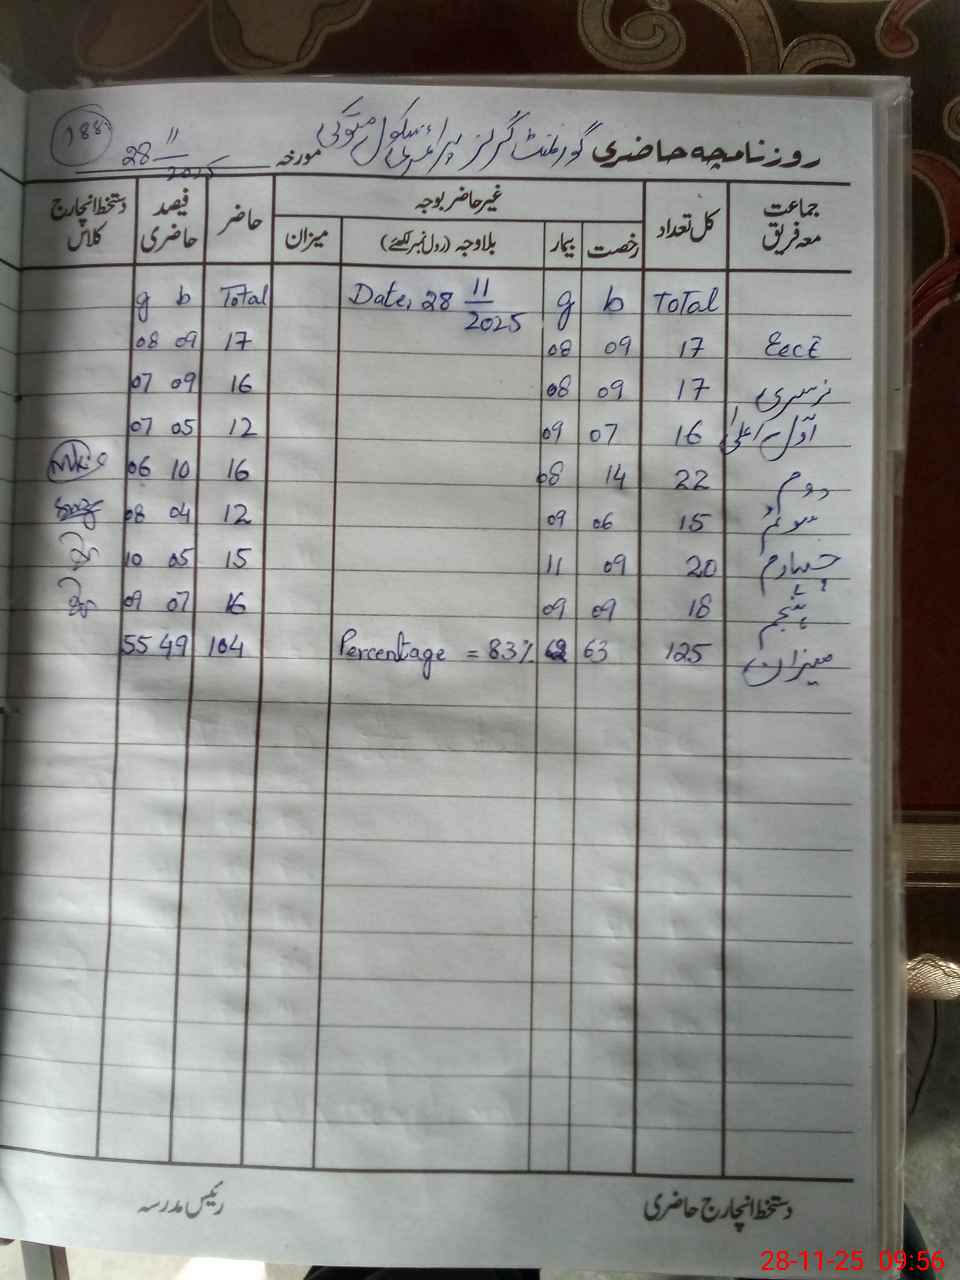 188
روزنامچہ حاضری گورنمنٹ گرلز پرائمری سکول مورخہ 28 11 2025
جماعت معہ فریق کل تعداد غیر حاضر بوجہ حاضر فیصد حاضری دستخط انچارج کلاس
رخصت بیمار بلاوجہ (رول نمبر لکھئے) میزان
Total b g Date, 28 11 2025 Total b g
Ecce 17 09 08 17 09 08
نرسری 17 09 08 16 09 07
اول اعلیٰ 16 07 09 12 05 07
دوم 22 14 08 16 10 06
سوئم 15 06 09 12 04 08
چہارم 20 09 11 15 05 10
پنجم 18 09 09 16 07 09
میزان 125 63 62 Percentage = 83% 104 49 55
دستخط انچارج حاضری رئیس مدرسہ
28-11-25 09:56